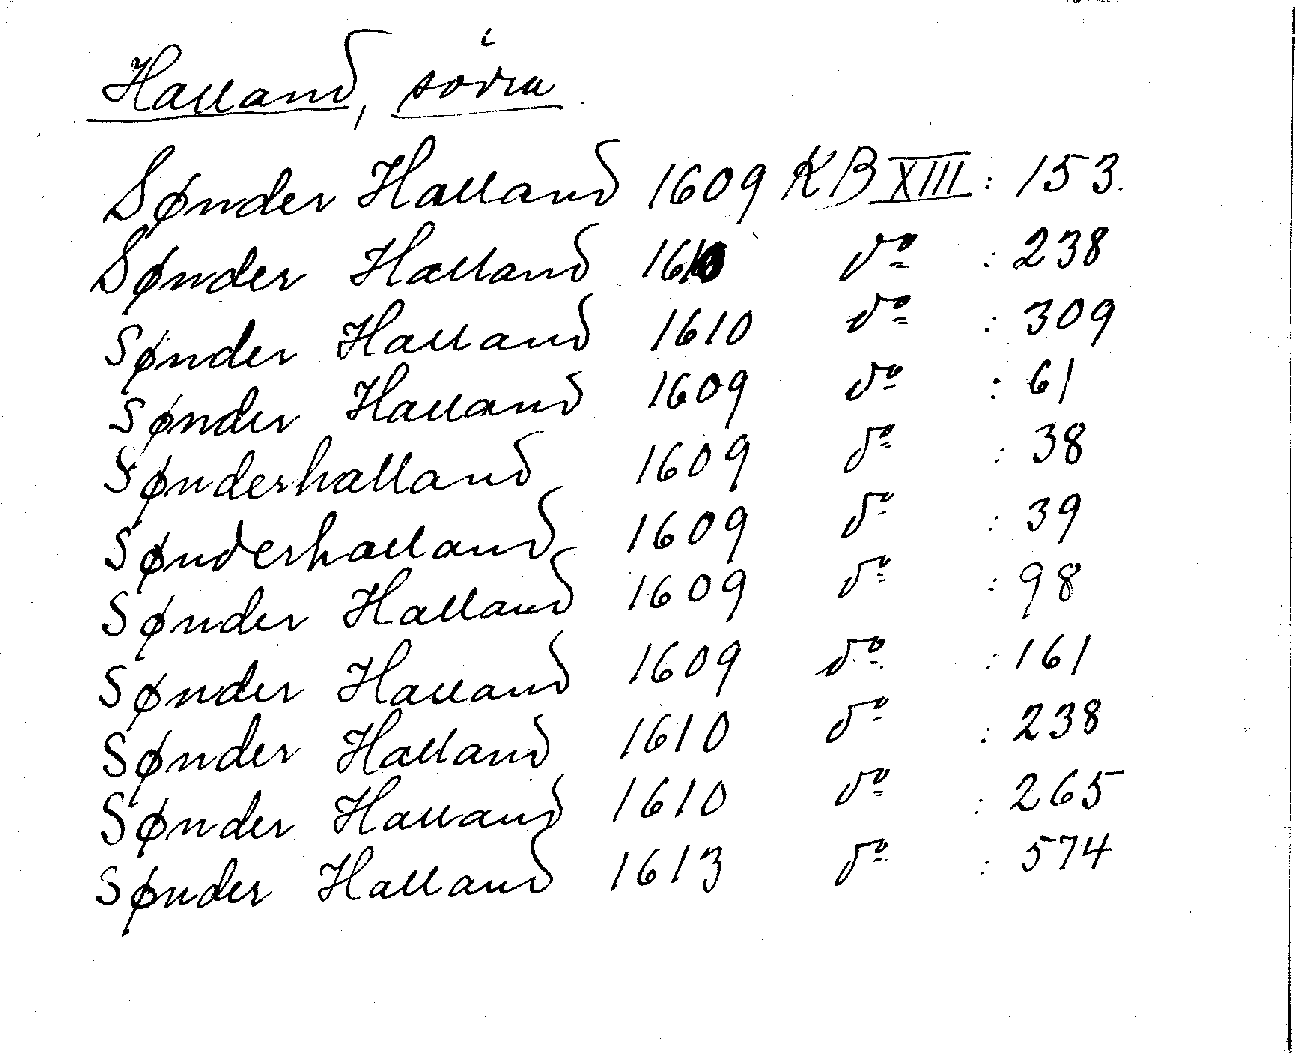 Halland, södra
Sønder Halland 1609 KB XIII : 153.
Sønder Halland 1610 do : 238
Sønder Halland 1610 do : 309
Sønder Halland 1609 do : 61
Sønderhalland 1609 do : 38
Sønderhalland 1609 do : 39
Sønder Halland 1609 do : 98
Sønder Halland 1609 do : 161
Sønder Halland 1610 do : 238
Sønder Halland 1610 do : 265
Sønder Halland 1613 do : 574